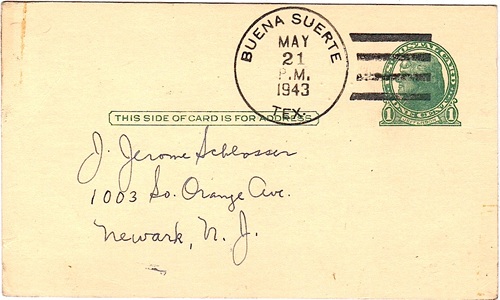 BUENA SUERTE
MAY
21
P.M.
1943
TEX.
THIS SIDE OF CARD IS FOR ADDRESS
1 1
J. Jerome Schlosser
1003 So. Orange Ave.
Newark, N. J.